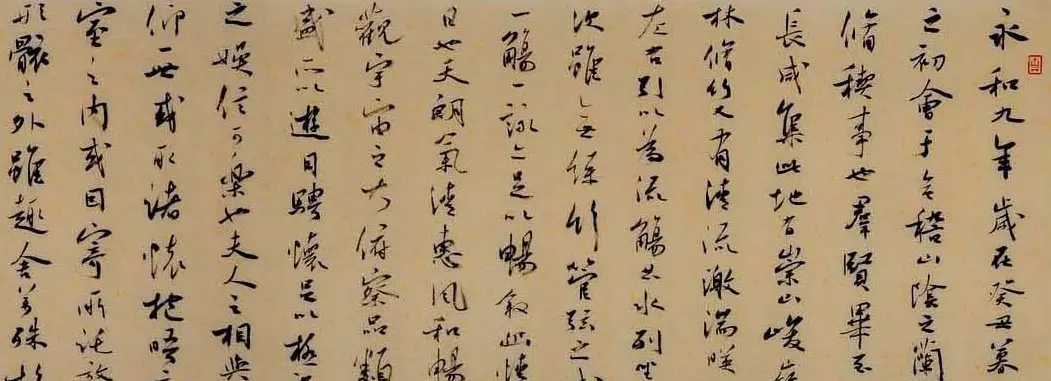 永和九年歲在癸丑暮
之初會于會稽山陰之蘭
脩稧事也羣賢畢至
長咸集此地有崇山峻
林脩竹又有清流激湍暎
左右引以為流觴曲水列坐
次雖無絲竹管弦之
一觴一詠亦足以暢敘幽情
日也天朗氣清惠風和暢
觀宇宙之大俯察品類
盛所以遊目騁懷足以極
之娛信可樂也夫人之相與
仰一世或取諸懷抱悟
室之內或因寄所託放
形骸之外雖趣舍萬殊